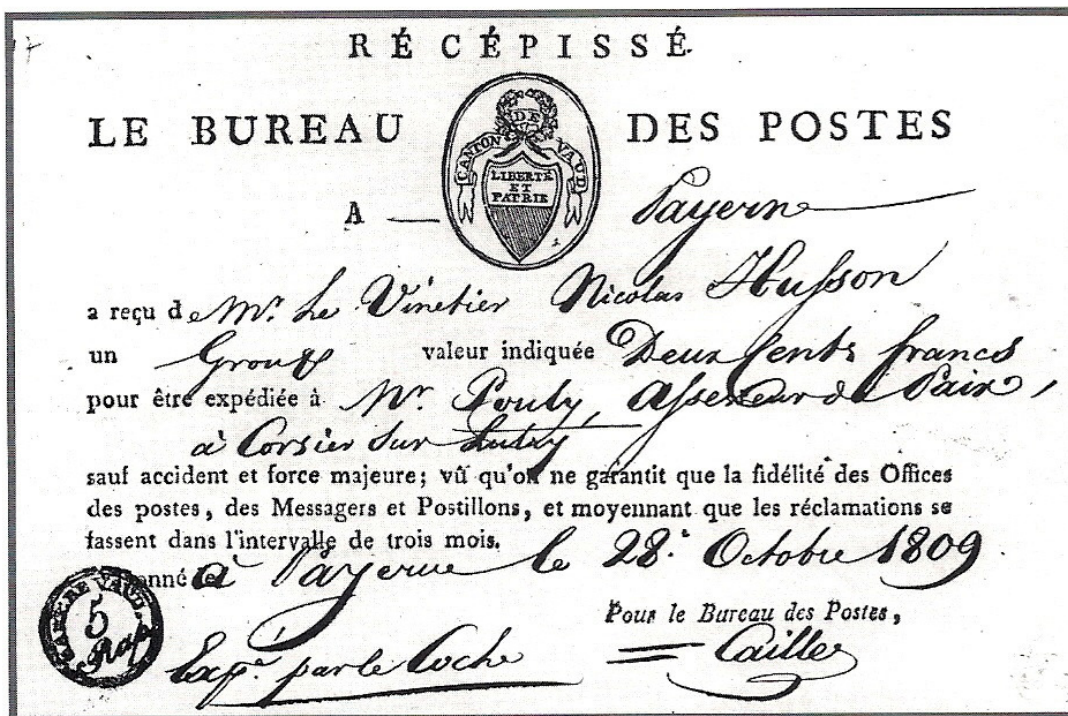 RÉCÉPISSÉ.
LE BUREAU DES POSTES
CANTON DE VAUD
LIBERTÉ
ET
PATRIE
A Payerne
a reçu de Mr. Le Vinetier Nicolas Husson
un Group valeur indiquée Deux Cents francs
pour être expédiée à Mr. Pouly, Assesseur de Paix,
à Corsier sur Lutry
sauf accident et force majeure; vû qu'on ne garantit que la fidélité des Offices
des postes, des Messagers et Postillons, et moyennant que les réclamations se
fassent dans l'intervalle de trois mois.
à Payerne le 28.e Octobre 1809
Pour le Bureau des Postes,
5
Rap.
Exp. par le Coche
Cailler